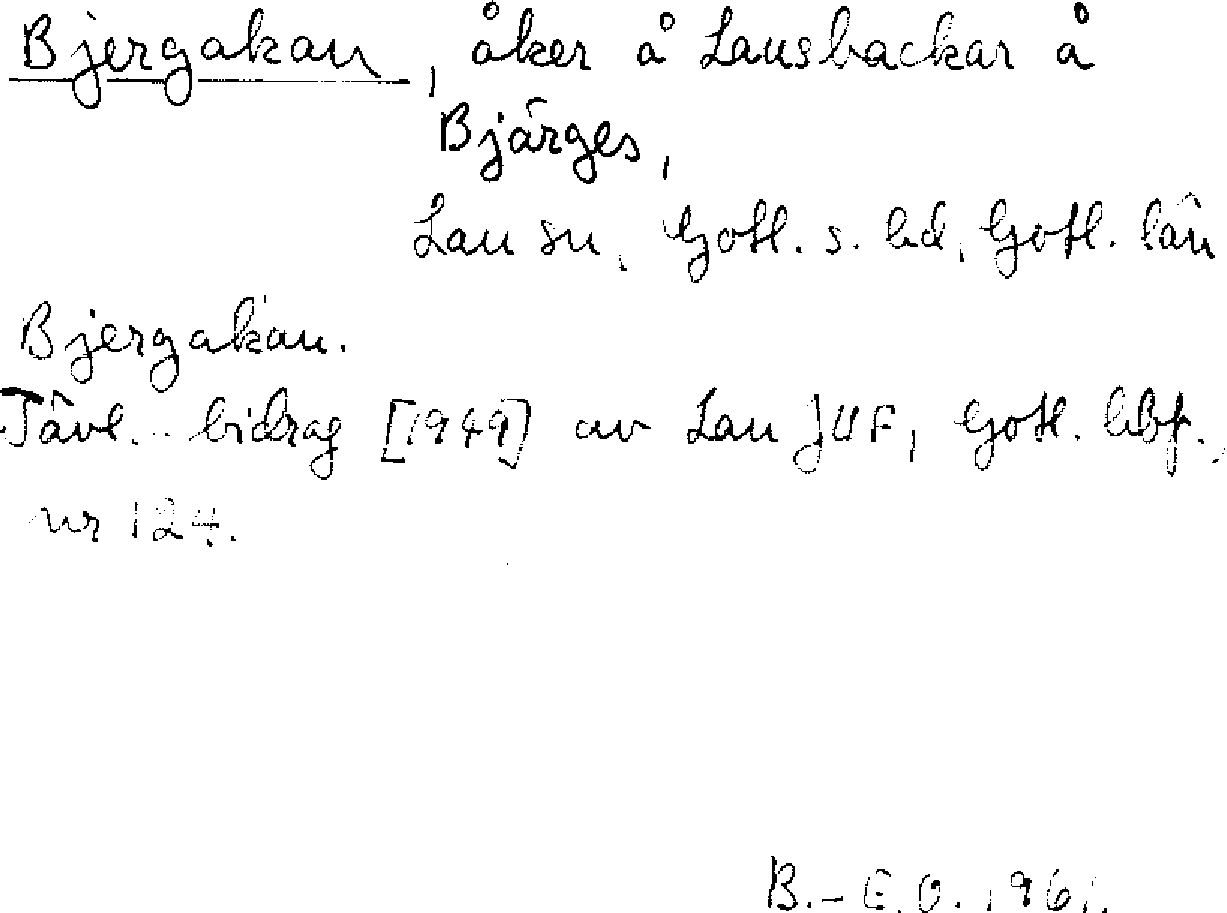 Bjergakan, åker å Lausbackar å
Bjärges,
Lau sn, Gotl. s. hd, Gotl. län
Bjergakan.
Tävl... bidrag [1949] av Lau JUF, Gotl. hbf.,
nr 124.
B.-E.O. 1961.